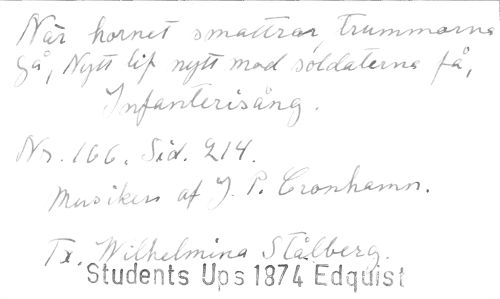 När hornet smattrar, trummorna
gå, Nytt lif nytt mod soldaterna få,
Infanterisång.
Nr. 166. Sid. 214.
Musiken af J. P. Cronhamn.
Tx. Wilhelmina Stålberg.
Students Ups 1874 Edquist